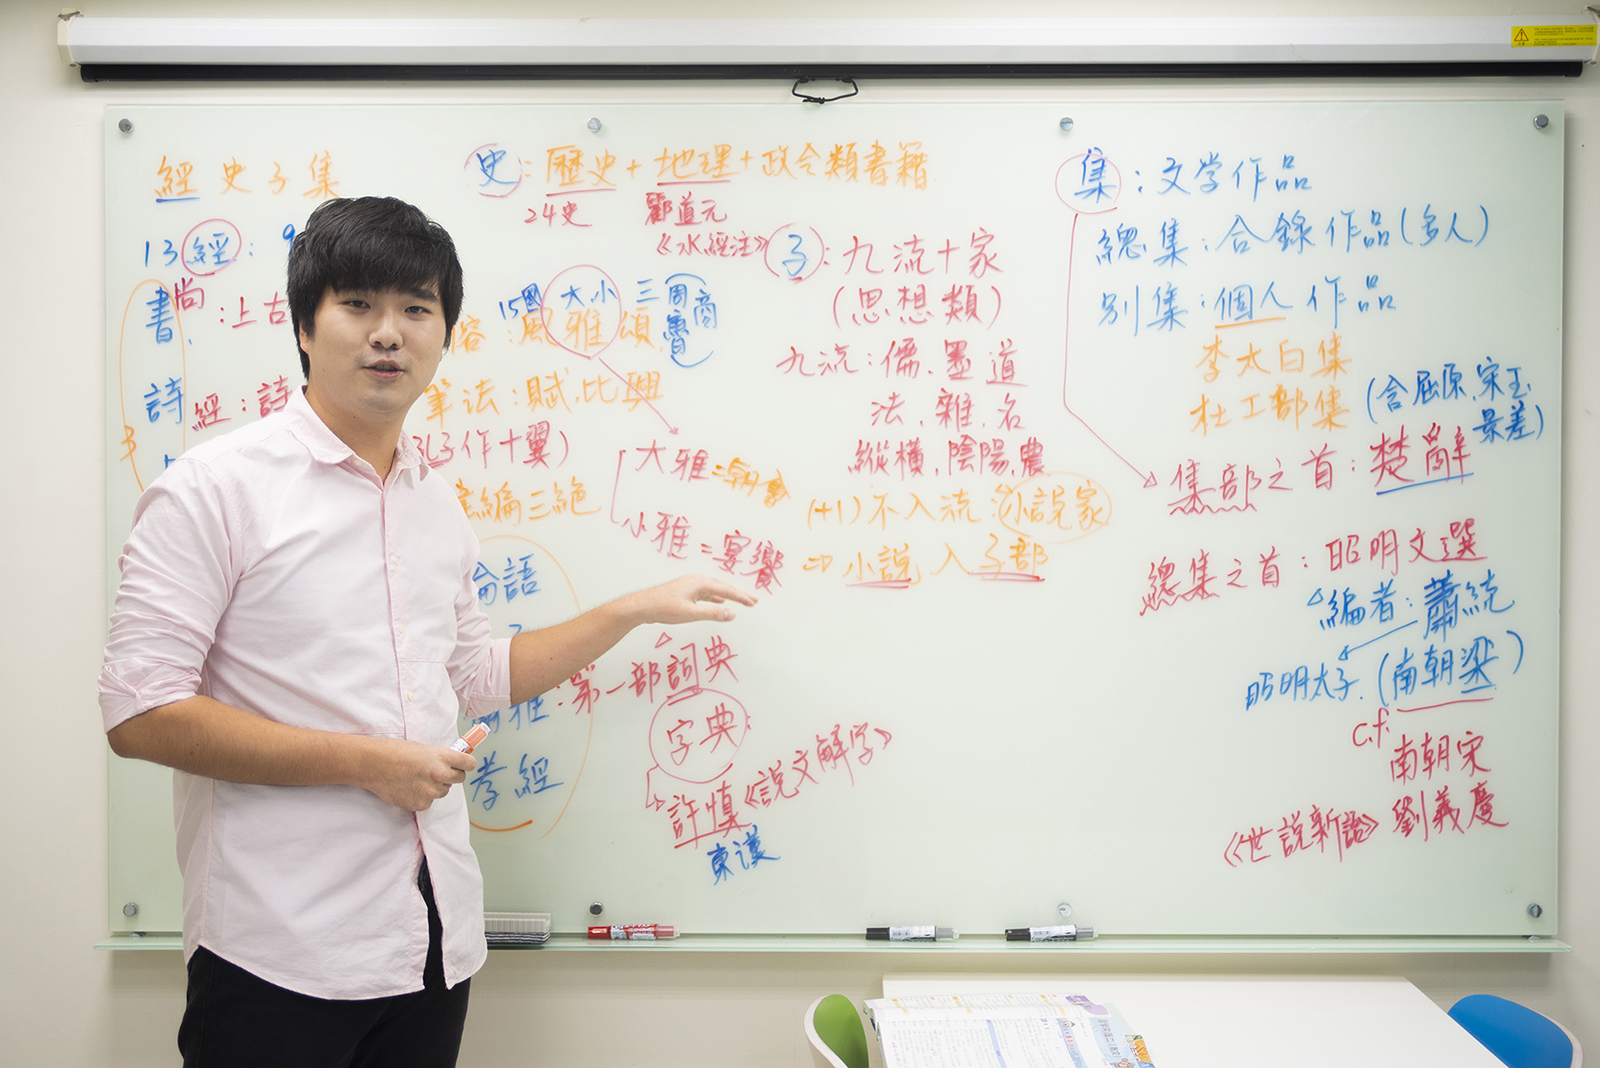 經史子集
13經：9
書，尚：上古
詩
經：詩
容：風雅頌，
15國
大小
三
周
魯
商
筆法：賦、比興
孔子作十翼）
編三絕
大雅=朝會
小雅=宴饗
論語
爾雅：第一部詞典
字典：
許慎《說文解字》
東漢
孝經
史：歷史+地理+政令類書籍
24史
酈道元
《水經注》
子：九流十家
（思想類）
九流：儒、墨、道
法、雜、名
縱橫、陰陽、農
（+1）不入流：小說家
⇒小說入子部
集：文学作品
總集：合錄作品（多人）
別集：個人作品
李太白集
杜工部集
（含屈原、宋玉、
景差）
集部之首：楚辭
總集之首：昭明文選
編者：蕭統
昭明太子．（南朝梁）
c.f.
南朝宋
《世說新語》劉義慶